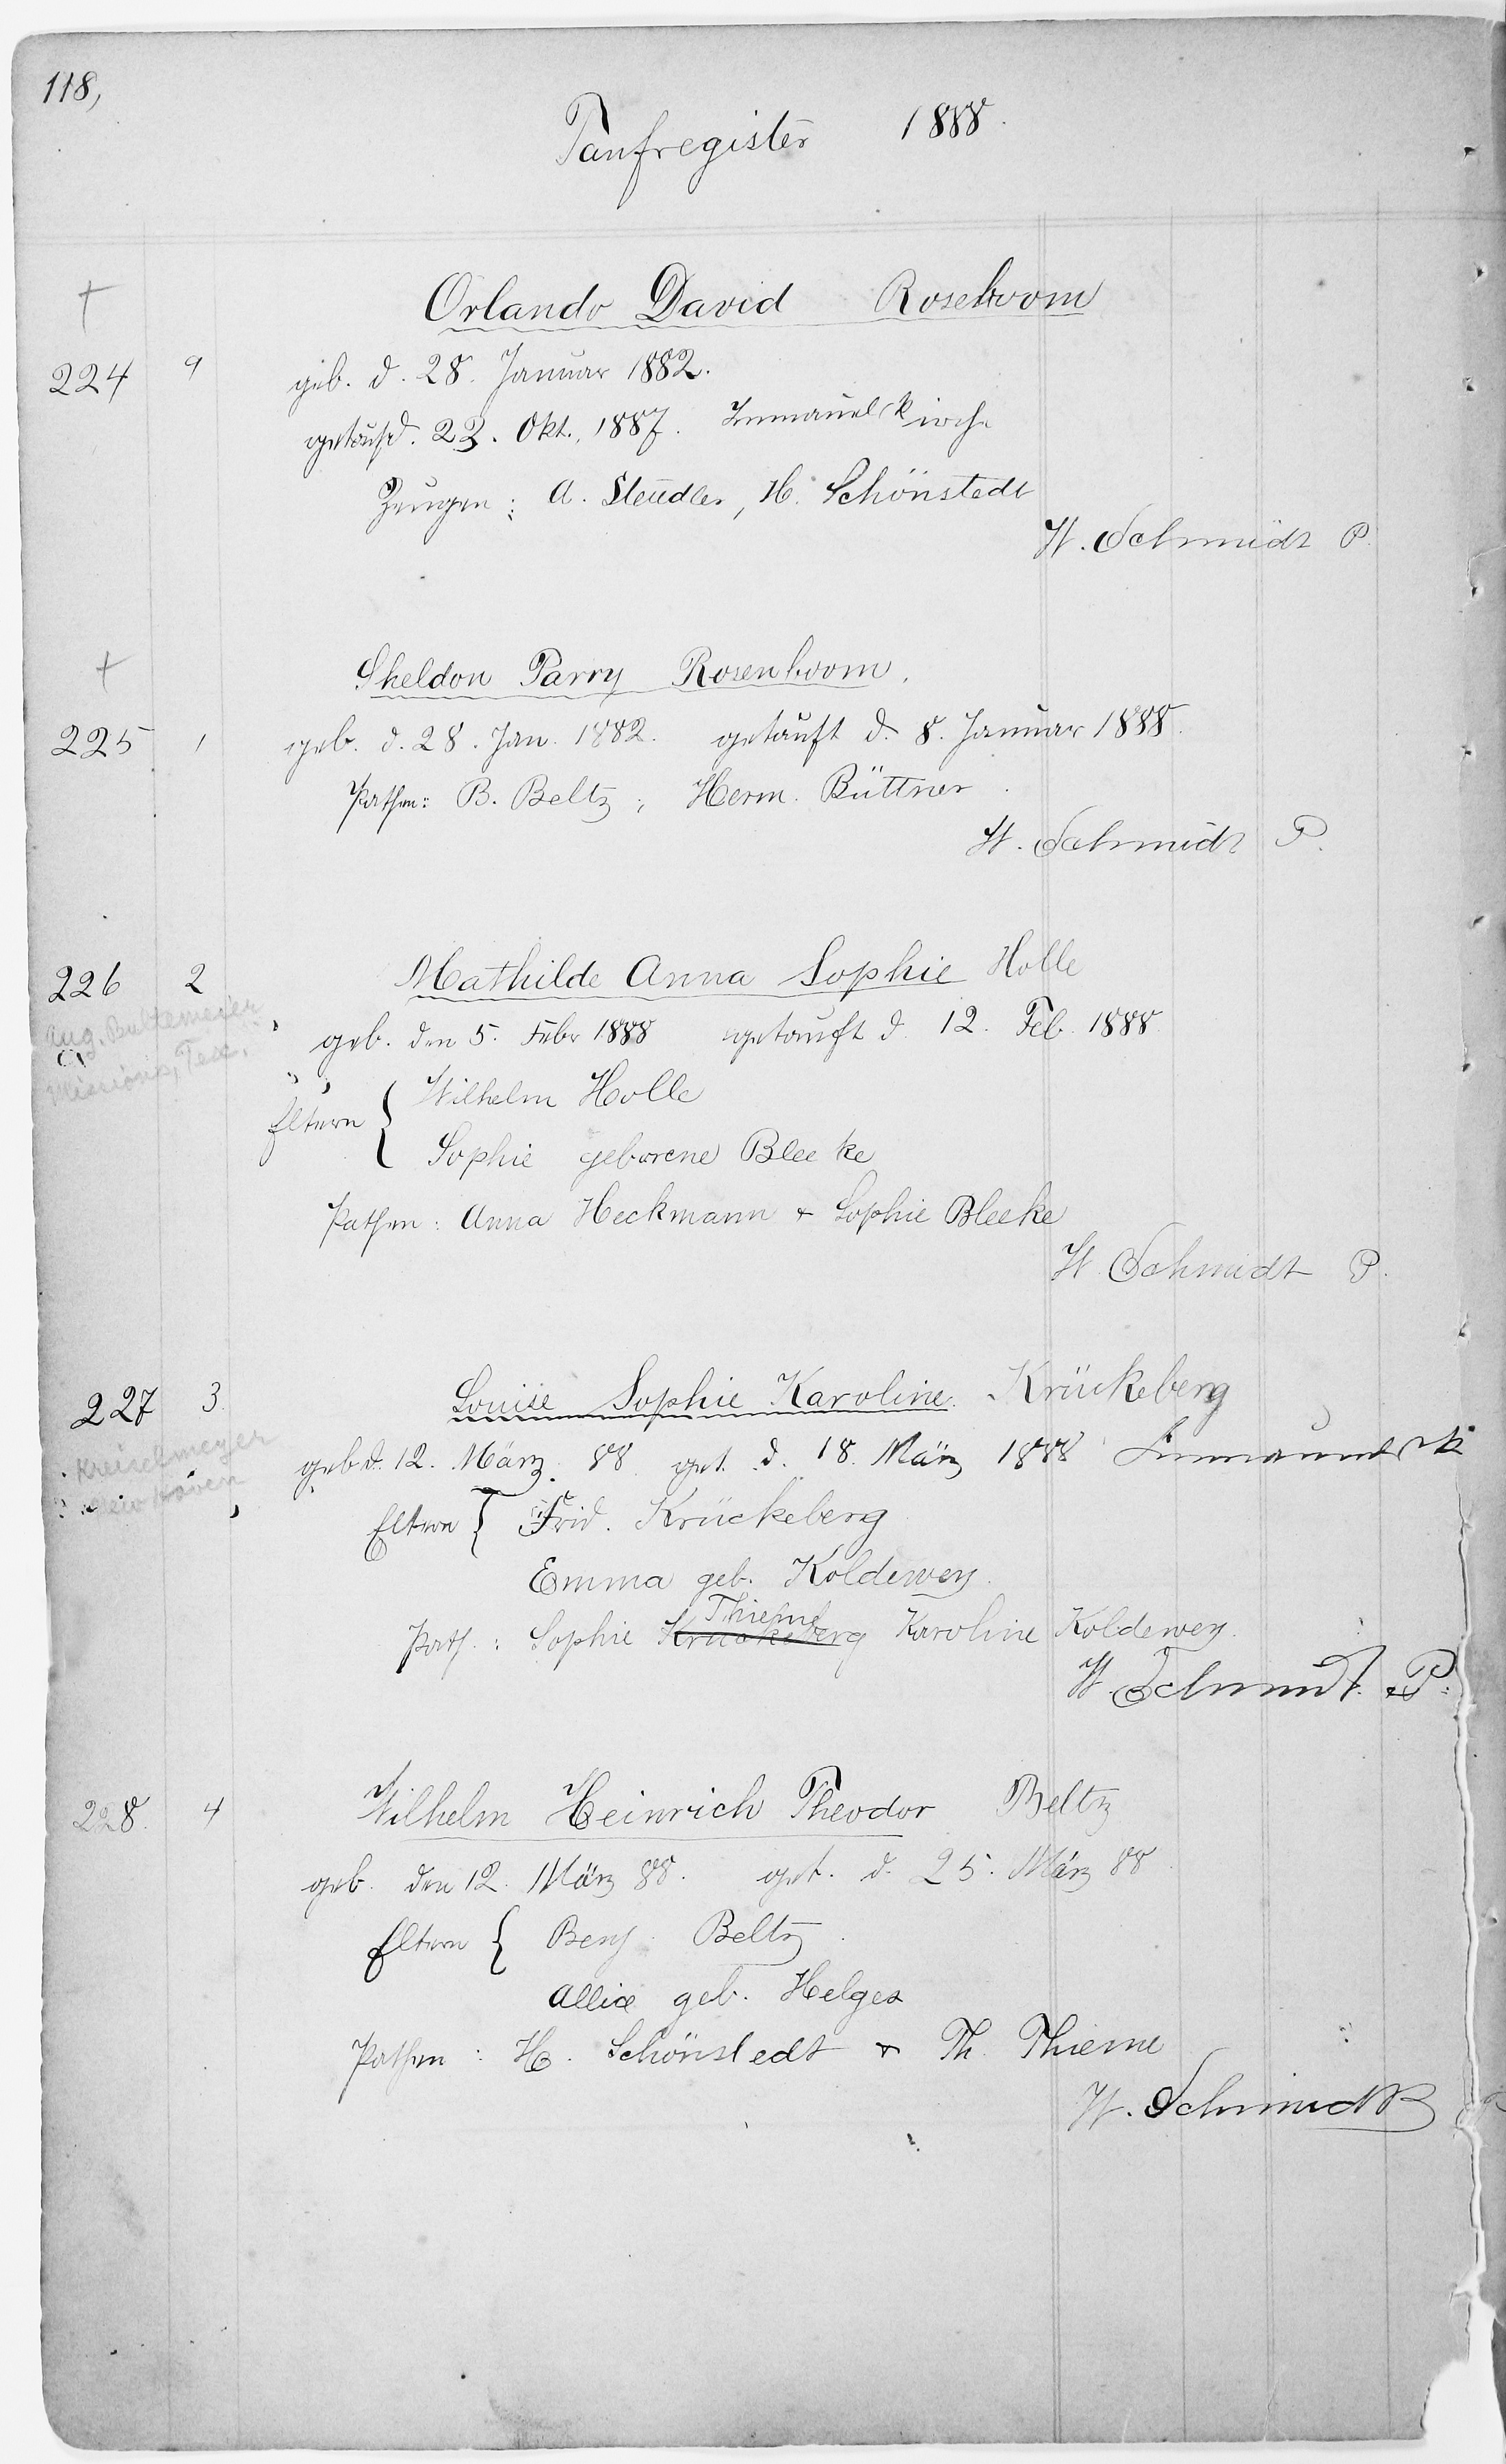 118,
Taufregister 1888.
†
Orlando David Roseboom
224 9 geb. d. 28. Januar 1882.
getauft d. 23. Okt., 1887. Immanuelskirche
Zeugen: A. Steudler, H. Schönstedt
W. Schmidt P.
†
Sheldon Parry Rosenboom.
225 1 geb. d. 28. Jan. 1882. getauft d. 8. Januar 1888.
Pathen: B. Beltz; Herm. Büttner
W. Schmidt P.
226 2 Mathilde Anna Sophie Holle
Aug. Bultemeier
Missions, Tex.
geb. den 5. Febr 1888 getauft d. 12. Feb. 1888
Eltern { Wilhelm Holle
Sophie geborene Bleeke
Pathen: Anna Heckmann & Sophie Bleeke
W. Schmidt P.
227 3. Louise Sophie Karoline Krückeberg
Kreiselmeyer
New Haven
geb d. 12. März. 88 get. d. 18. März 1888 Immanuelsk
Eltern { Frid. Krückeberg
Emma geb. Koldewey.
Thieme
Path.: Sophie Krückeberg Karoline Koldewey.
W. Schmidt P.
228. 4 Wilhelm Heinrich Theodor Beltz
geb. den 12. März 88. get. d. 25. März 88
Eltern { Benj. Beltz
Allice geb. Helges
Pathen: H. Schönstedt & Th. Thieme
W. Schmidt P